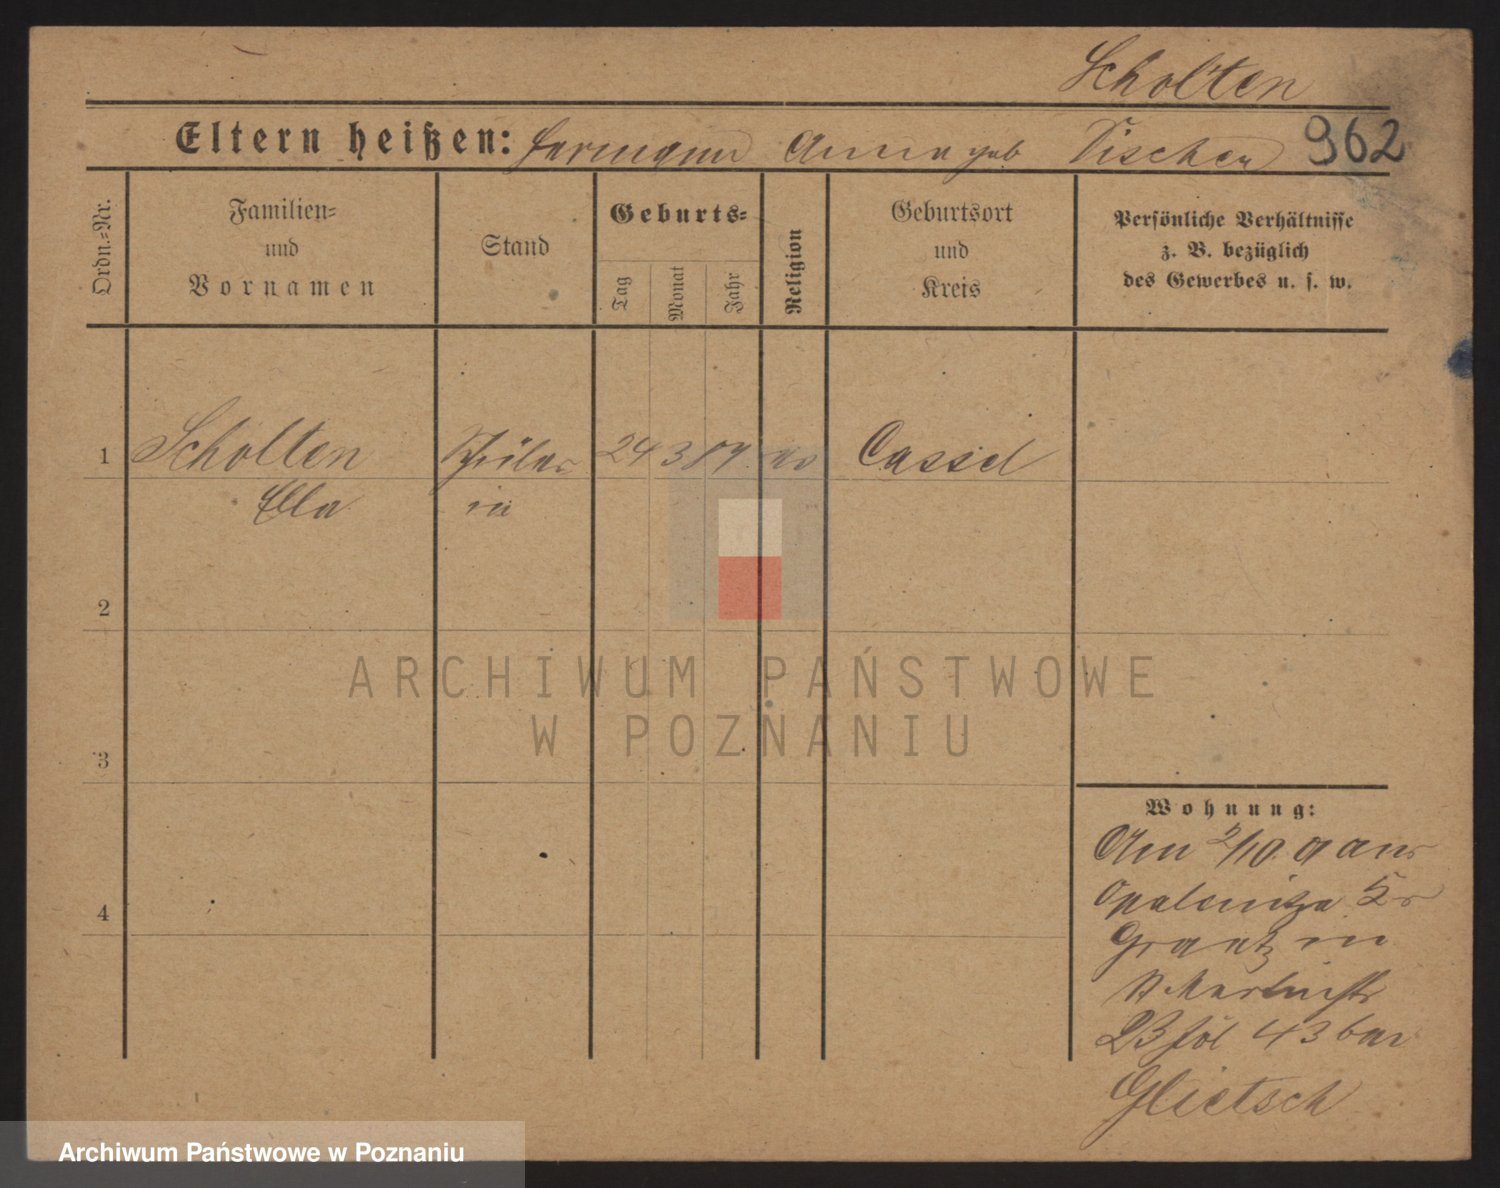 Scholten
Eltern heißen: Hermann Anna geb Tischer 962
Ordn.=Nr.
Familien=
und
Vornamen
Stand
Geburts=
Tag
Monat
Jahr
Religion
Geburtsort
und
Kreis
Persönliche Verhältnisse
z. B. bezüglich
des Gewerbes u. s. w.
1 Scholten Schüler 24 3 89 ev Cassel
Ella in
2
3
4
Wohnung:
Am 2/10. 9 aus
Opalenitza Kr
Graetz in
St Martinstr
23 bei
Glietsch
ARCHIWUM PAŃSTWOWE
W POZNANIU
Archiwum Państwowe w Poznaniu